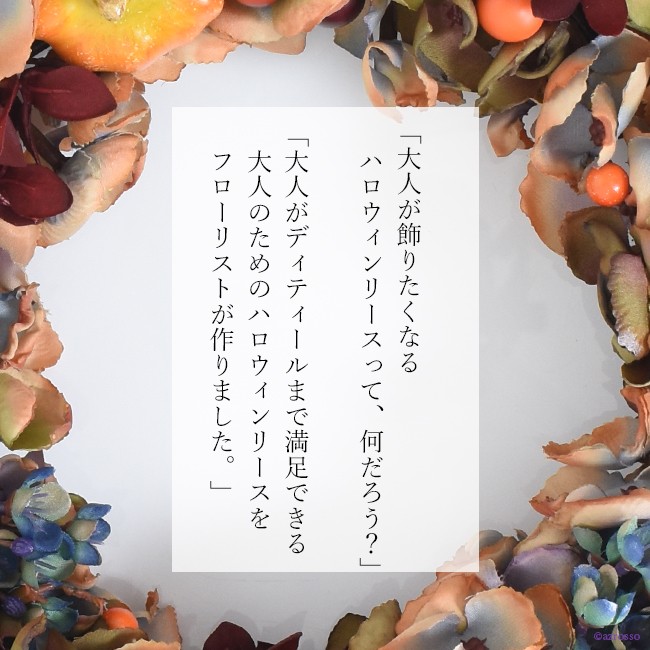 「大人が飾りたくなる
ハロウィンリースって、何だろう？」
「大人がディティールまで満足できる
大人のためのハロウィンリースを
フローリストが作りました。」